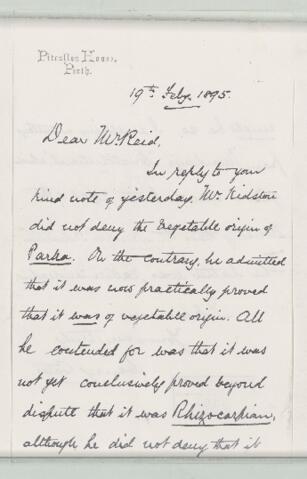 Pitcullen House,
Perth.
19th Feby. 1895.
Dear Mr Reid,
In reply to your
kind note of yesterday, Mr. Kidston
did not deny the vegetable origin of
Parka. On the contrary, he admitted
that it was now practically proved
that it was of vegetable origin. All
he contended for was that it was
not yet conclusively proved beyond
dispute that it was Rhizocarpian,
although he did not deny that it